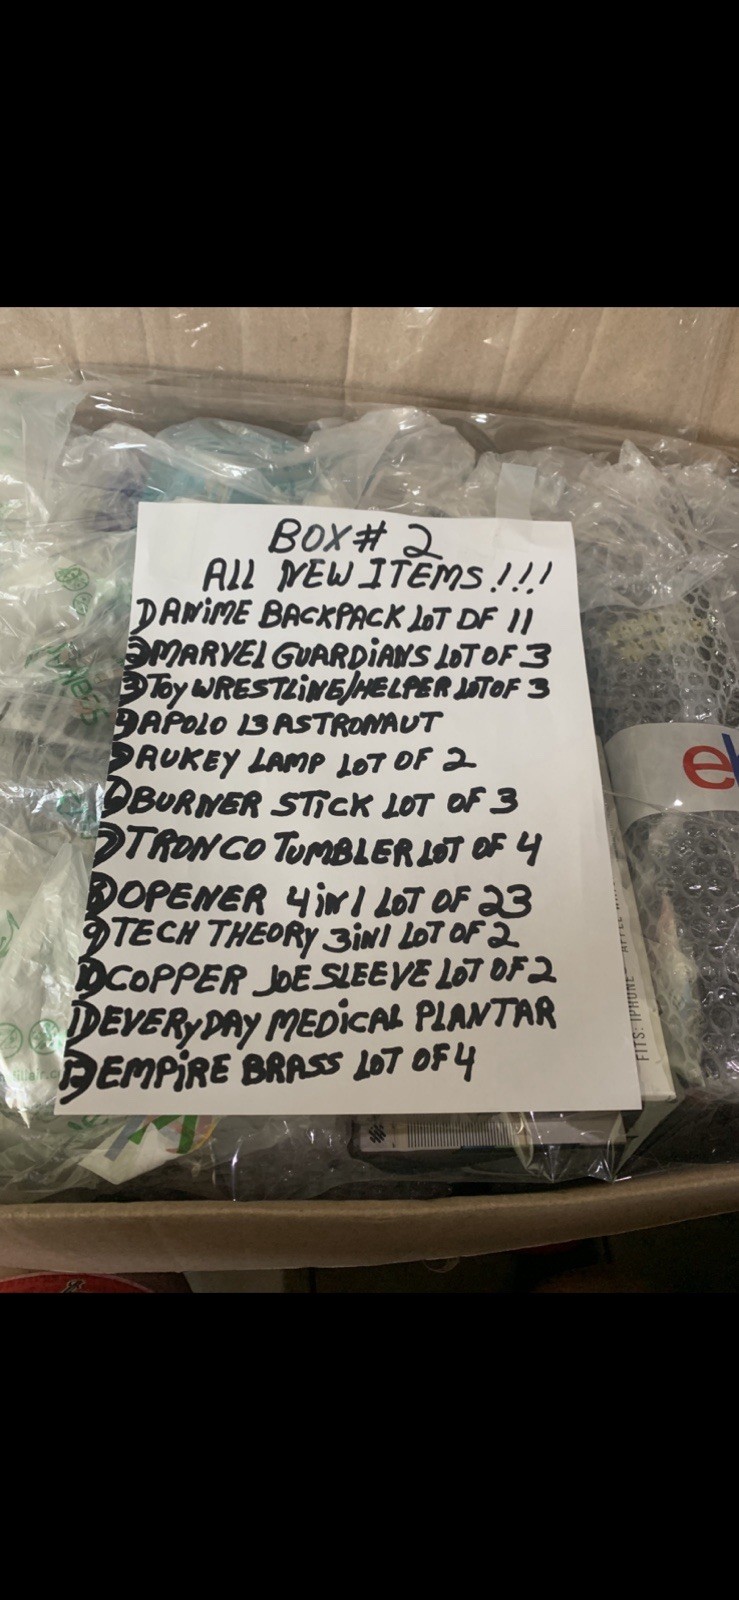 BOX # 2
ALL NEW ITEMS!!!
1) ANIME BACKPACK LOT OF 11
2) MARVEL GUARDIANS LOT OF 3
3) TOY WRESTLINE/HELPER LOT OF 3
4) APOLO 13 ASTRONAUT
5) AUKEY LAMP LOT OF 2
6) BURNER STICK LOT OF 3
7) TRONCO TUMBLER LOT OF 4
8) OPENER 4 in 1 LOT OF 23
9) TECH THEORY 3in1 LOT OF 2
10) COPPER JOE SLEEVE LOT OF 2
11) EVERYDAY MEDICAL PLANTAR
12) EMPIRE BRASS LOT OF 4
eb
FITS: IPHONE APPLE